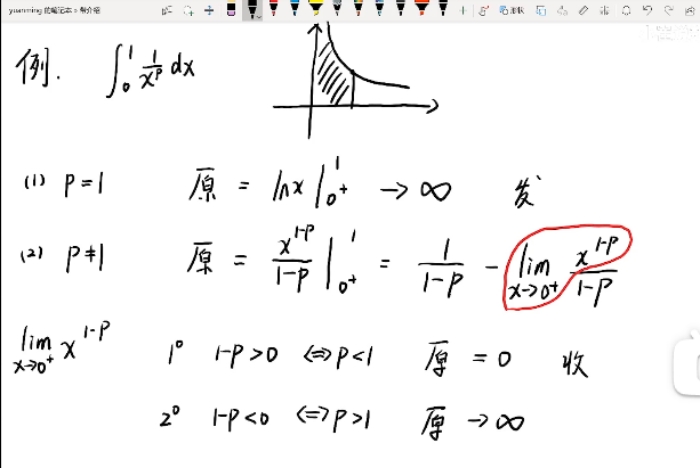 yuanming 的笔记本 > 帮介绍
例. ∫₀¹ 1/xᵖ dx
(1) p=1 原 = ln x |₀₊¹ → ∞ 发
(2) p≠1 原 = x^(1-p)/(1-p) |₀₊¹ = 1/(1-p) - lim x→0⁺ x^(1-p)/(1-p)
lim x→0⁺ x^(1-p) 1° 1-p>0 ⟺ p<1 原 = 0 收
2° 1-p<0 ⟺ p>1 原 → ∞